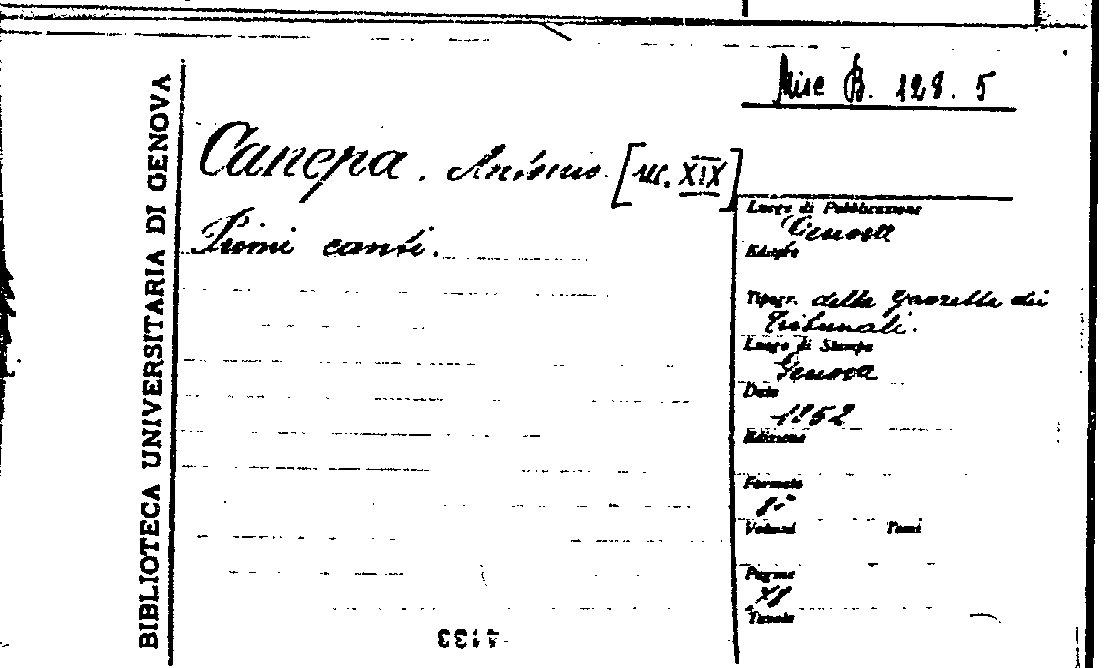 BIBLIOTECA UNIVERSITARIA DI GENOVA
Misc B. 128. 5
Canepa. Antonio [sec. XIX]
Primi canti.
Luogo di Pubblicazione
Genova
Editore
Tipogr. della Gazzetta dei
Tribunali.
Luogo di Stampa
Genova
Data
1852
Edizione
Formato
8°
Volumi Tomi
Pagine
Tavole
4133